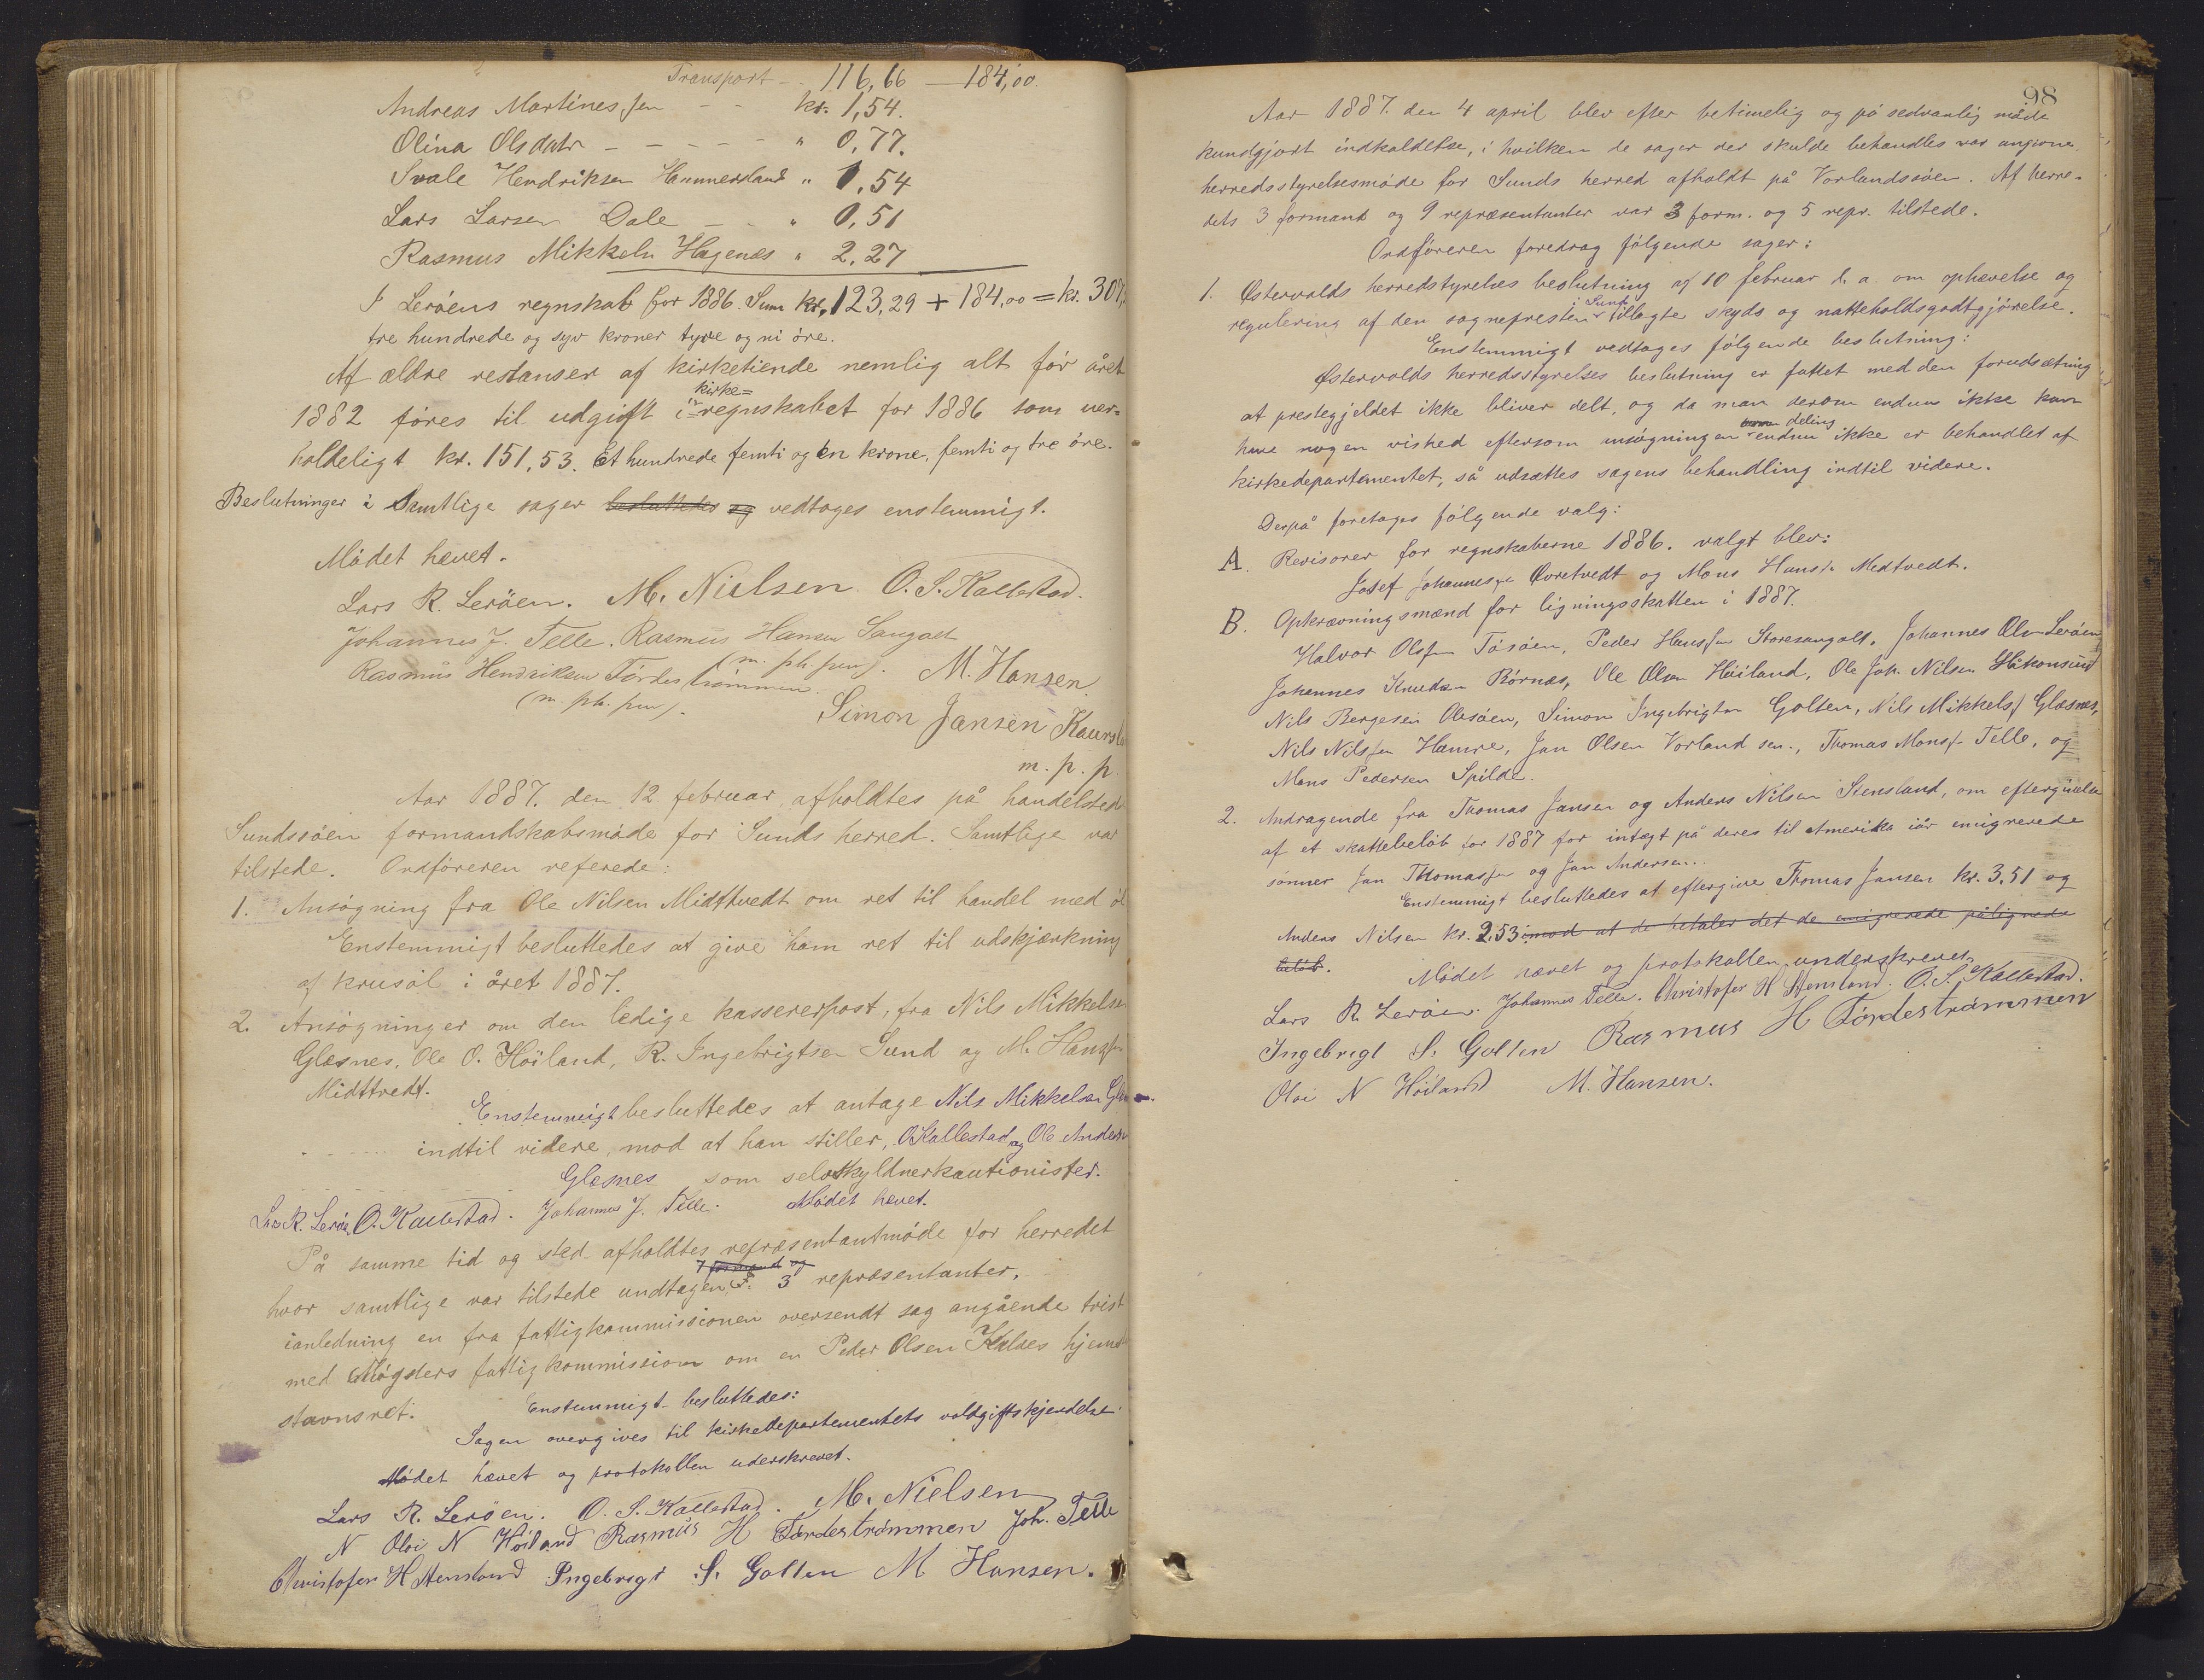 Transport - - 116,66 — 184,00.
Andreas Martinessen - - kr. 1,54.
Olina Olsdatr - - - - - " 0,77.
Svale Hendriksen Hummersland " 1,54
Lars Larsen Dale - - " 0,51
Rasmus Mikkelsn Hagenæs " 2,27
I Lerøens regnskab for 1886. Sum kr. 123,29 + 184,00 = kr. 307,
tre hundrede og syv kroner tyve og ni øre.
Af ældre restanser af kirketiende nemlig alt før året
1882 føres til udgift i kirke=regnskabet for 1886 som uer=
holdeligt kr. 151,53. Et hundrede femti og en krone, femti og tre øre.
Beslutninger i samtlige sager besluttedes og vedtoges enstemmigt.
Mødet hævet.
Lars R. Lerøen. M. Nielsen O. S. Kallestad.
Johannes J. Telle. Rasmus Hansen Sangolt
(m. ph. pen).
Rasmus Hendriksen Førdestrømmen. M. Hansen.
(m. ph. pen).
Simon Jansen Kaursl
m. p. p.
Aar 1887. den 12 februar afholdtes på handelsted
Sundssøen formandskabsmøde for Sunds herred. Samtlige var
tilstede. Ordføreren referede:
1. Ansøgning fra Ole Nilsen Midttvedt om ret til handel med øl
Enstemmigt besluttedes at give ham ret til udskjænkning
af krusøl i året 1887.
2. Ansøgninger om den ledige kassererpost, fra Nils Mikkelsen
Glæsnes, Ole O. Høiland, R. Ingebrigtsen Sund og M. Hansen
Midttvedt.
Enstemmigt besluttedes at antage Nils Mikkelsen Glæs
indtil videre, mod at han stiller, O. Kallestad og Ole Anders
Glesnes som selvskyldnerkautionister.
Lars R. Lerøen O. Kallestad. Johannes J. Telle. Mødet hævet.
På samme tid og sted afholdtes repræsentantmøde for herredet
hvor samtlige var tilstede undtagen 1 formand og 3 repræsentanter,
ianledning en fra fattigkommissionen oversendt sag angående trist
med Møgsters fattigkommission om en Peder Olsen Kalves hjem
stavnsret.
Enstemmigt besluttedes:
Sagen overgives til kirkedepartementets voldgiftskjendelse.
Mødet hævet og protokollen uderskrevet.
Lars R. Lerøen. O. S. Kallestad. M. Nielsen
N Oloi N Høiland Rasmus H Førdestrømmen Joh. Telle
Christofer H Stensland Ingebrigt S. Golten M Hansen.
98
Aar 1887. den 4 april blev efter betimelig og på sedvanlig måde
kundgjort indkaldelse, i hvilken de sager der skulde behandles var angivne
herredsstyrelsesmøde for Sunds herred afholdt på Vorlandssøen. Af herre=
dets 3 formænd og 9 repræsentanter var 3 form. og 5 repr. tilstede.
Ordføreren foredrog følgende sager:
1. Østervolds herredstyrelses beslutning af 10 februar d. a. om ophævelse og
regulering af den sognepresten i Sund tillagte skyds og natteholdsgodtgjørelse.
Enstemmigt vedtages følgende beslutning:
Østervolds herredsstyrelses beslutning er fattet med den forudsætning
at prestegjeldet ikke bliver delt, og da man derom endnu ikke kan
have nogen vished eftersom ansøgningen om deling endnu ikke er behandlet af
kirkedepartementet, så udsættes sagens behandling indtil videre.
Derpå foretages følgende valg:
A. Revisorer for regnskaberne 1886. valgt blev:
Josef Johannessen Øvretvedt og Mons Hanssn Medtvedt.
B. Opkrævningsmænd for ligningsskatten i 1887.
Halvor Olsen Tøsøen, Peder Hanssen Storesangolt, Johannes Olsn Lerøen
Johannes Knudsen Rørnæs, Ole Olsen Høiland, Ole Joh. Nilsen Håkonsund
Nils Børgesen Olesøen, Simon Ingebrigtsn Golten, Nils Mikkelsn Glæsnæs,
Nils Nilssen Hamre, Jan Olsen Vorland sen., Thomas Monsn Telle, og
Mons Pedersen Spilde.
2. Andragende fra Thomas Jansen og Anders Nilsen Stensland, om eftergivelse
af et skattebeløb for 1887 for intægt på deres til Amerika iår emigrerede
sønner Jan Thomassen og Jan Andersen.
Enstemmigt besluttedes at eftergive Thomas Jansen kr. 3,51 og
Anders Nilsen kr. 2,53 imod at de betaler det de emigrerede pålignede
beløb.
Mødet hævet og protokollen underskrevet.
Lars R. Lerøen. Johannes Telle. Christofer H Stensland. O. S. Kallestad.
Ingebrigt S. Golten Rasmus H Førdestrømmen
Oloi N Høiland M. Hansen.